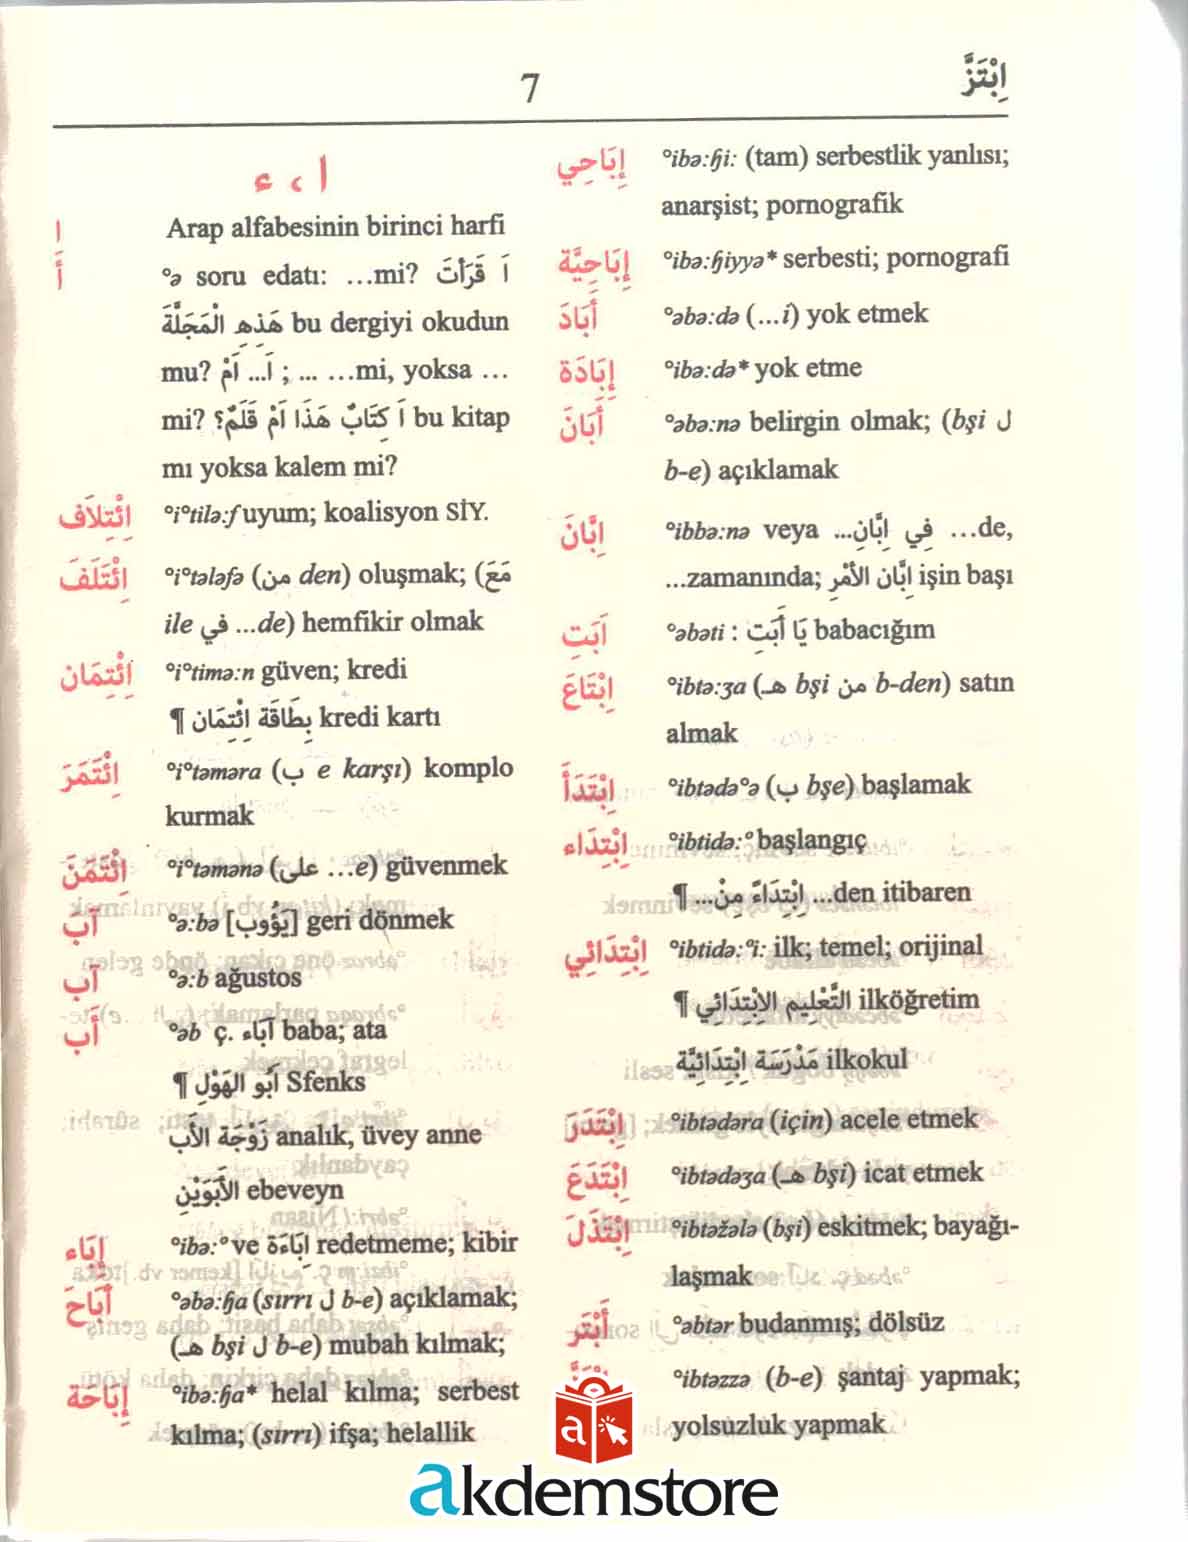 7
اِبْتَزَّ
ا ، ء
ا Arap alfabesinin birinci harfi
أَ °ə soru edatı: …mi? اَ قَرَأْتَ
هَذِهِ الْمَجَلَّةَ bu dergiyi okudun
mu? اَ... اَمْ ; ... …mi, yoksa …
mi? اَ كِتَابٌ هَذَا اَمْ قَلَمٌ؟ bu kitap
mı yoksa kalem mi?
اِئْتِلاَف °i°tilə:f uyum; koalisyon SİY.
اِئْتَلَفَ °i°tələfə (من den) oluşmak; (مَعَ
ile في ...de) hemfikir olmak
اِئْتِمَان °i°timə:n güven; kredi
¶ بِطَاقَة اِئْتِمَان kredi kartı
اِئْتَمَرَ °i°təməra (ب e karşı) komplo
kurmak
اِئْتَمَنَ °i°təmənə (على ...e) güvenmek
آبَ °ə:bə [يَؤُوب] geri dönmek
آب °ə:b ağustos
أَب °əb ç. آبَاء baba; ata
¶ أَبُو الهَوْلِ Sfenks
زَوْجَة الأَب analık, üvey anne
الأَبَوَيْنِ ebeveyn
إِبَاء °ibə:° ve اِبَاءَة redetmeme; kibir
أَبَاحَ °əbə:ɧa (sırrı ل b-e) açıklamak;
(هـ bşi ل b-e) mubah kılmak;
إِبَاحَة °ibə:ɧa* helal kılma; serbest
kılma; (sırrı) ifşa; helallik
إِبَاحِي °ibə:ɧi: (tam) serbestlik yanlısı;
anarşist; pornografik
إِبَاحِيَّة °ibə:ɧiyyə* serbesti; pornografi
أَبَادَ °əbə:də (...i) yok etmek
إِبَادَة °ibə:də* yok etme
أَبَانَ °əbə:nə belirgin olmak; (bşi ل
b-e) açıklamak
اِبَّانَ °ibbə:nə veya فِي اِبَّانِ... …de,
...zamanında; اِبَّان الأَمْرِ işin başı
اَبَتِ °əbəti : يَا أَبَتِ babacığım
اِبْتَاعَ °ibtə:ʒa (هـ bşi من b-den) satın
almak
اِبْتَدَأَ °ibtədə°ə (ب bşe) başlamak
اِبْتِدَاء °ibtidə:° başlangıç
¶ اِبْتِدَاءً مِنْ... ...den itibaren
اِبْتِدَائِي °ibtidə:°i: ilk; temel; orijinal
¶ التَّعْلِيم الاِبْتِدَائِي ilköğretim
مَدْرَسَة اِبْتِدَائِيَّة ilkokul
اِبْتَدَرَ °ibtədəra (için) acele etmek
اِبْتَدَعَ °ibtədəʒa (هـ bşi) icat etmek
اِبْتَذَلَ °ibtəžələ (bşi) eskitmek; bayağı-
laşmak
أَبْتَر °əbtər budanmış; dölsüz
°ibtəzzə (b-e) şantaj yapmak;
yolsuzluk yapmak
a
akdemstore